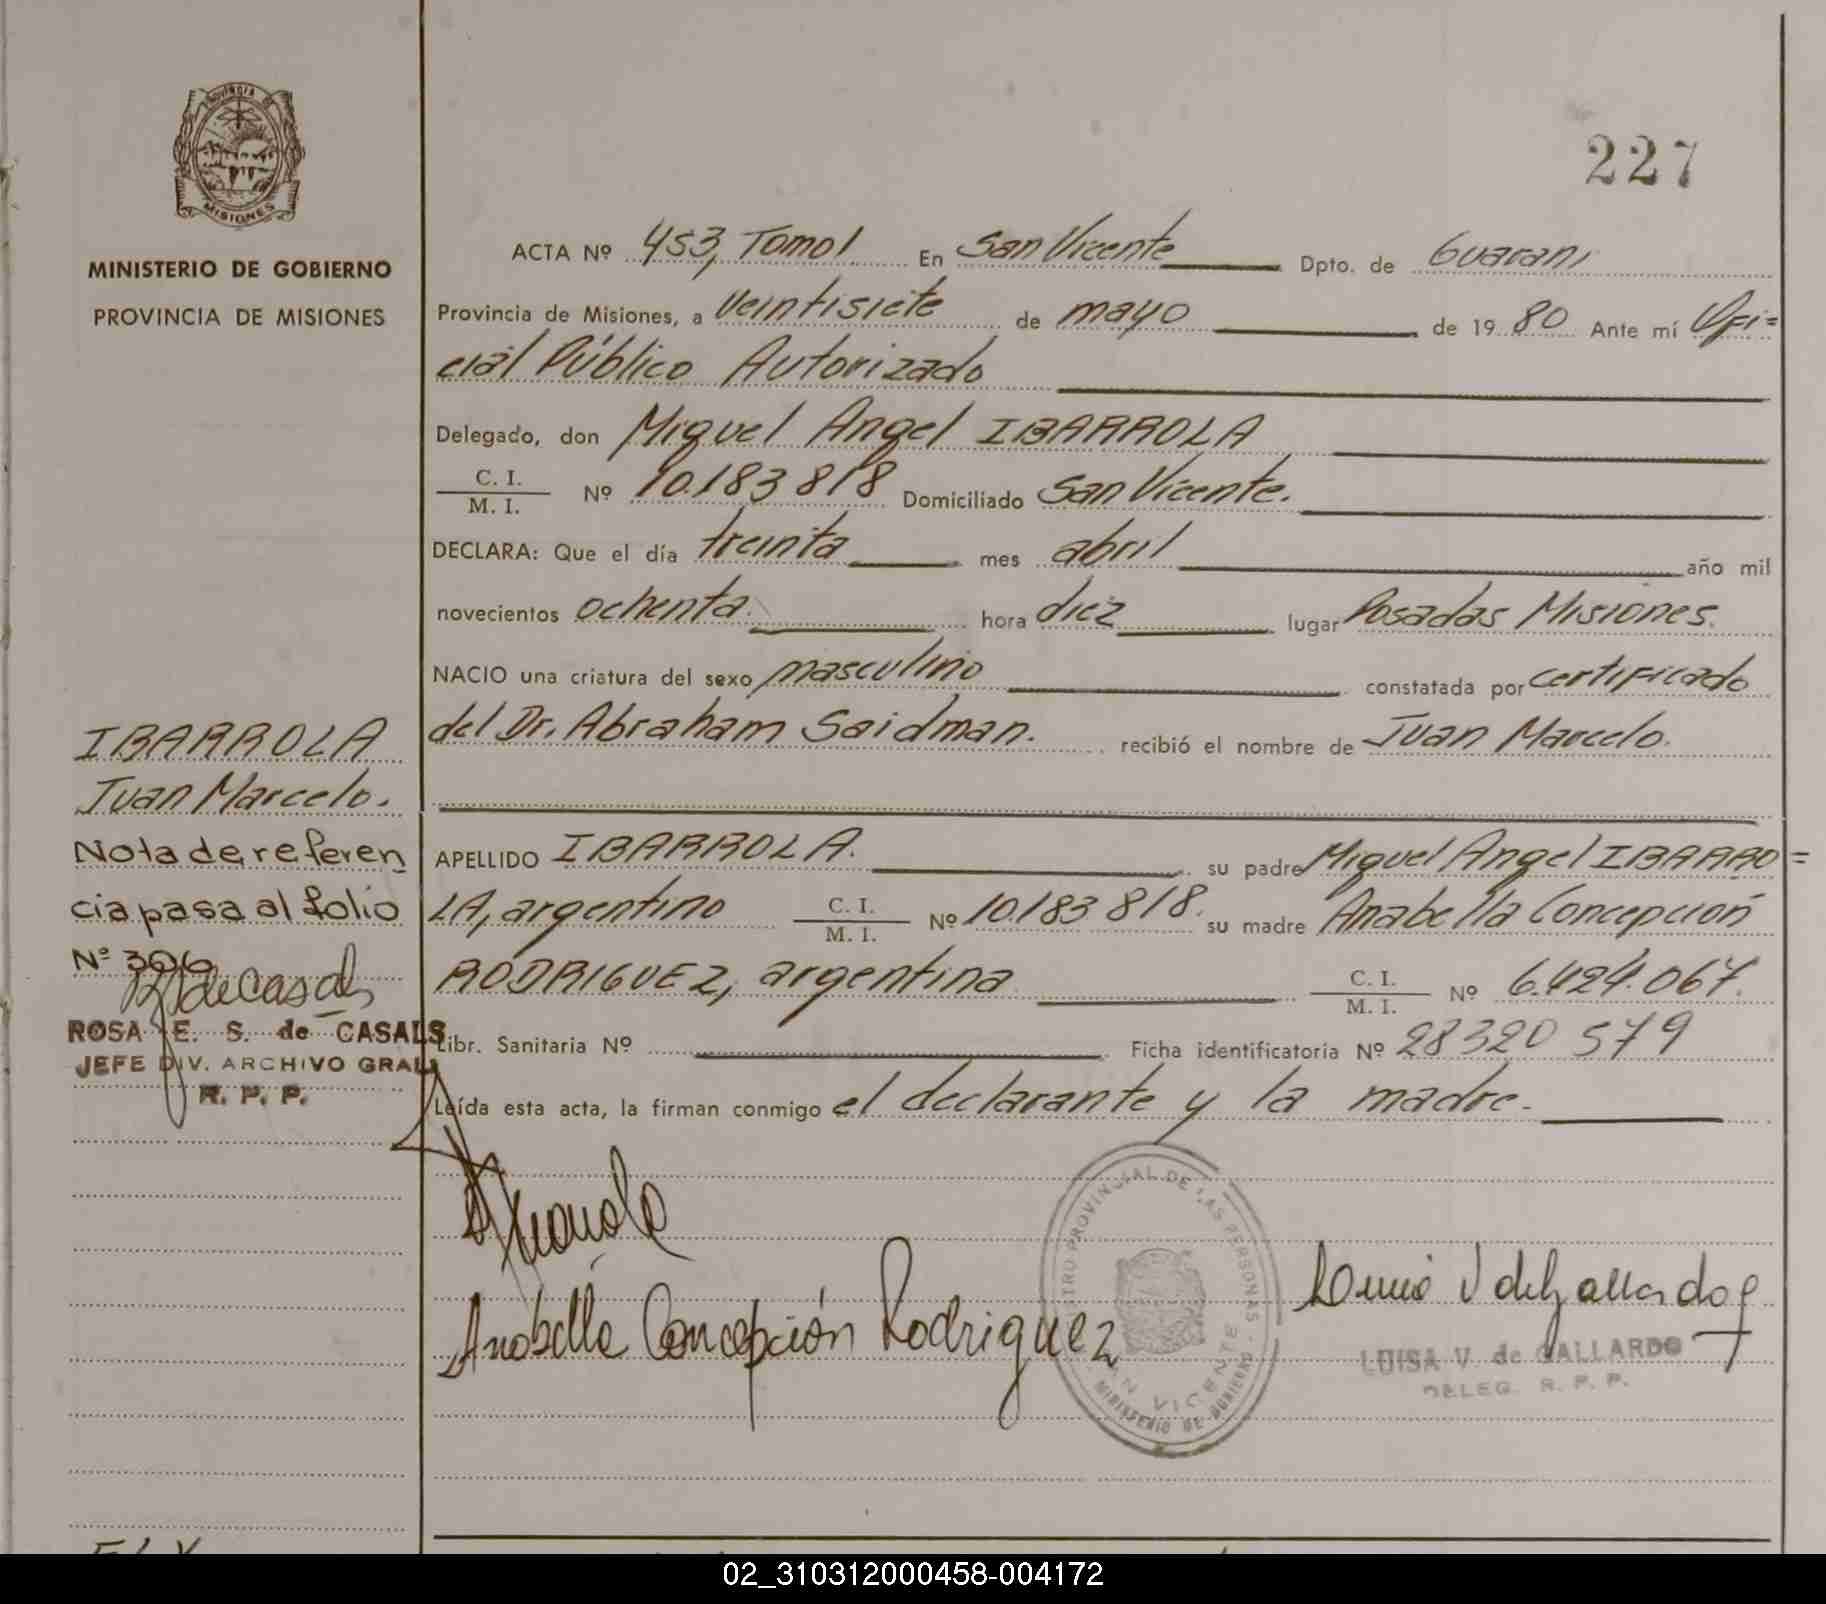 PROVINCIA DE
MISIONES
MINISTERIO DE GOBIERNO
PROVINCIA DE MISIONES
227
ACTA Nº 453, Tomo I En San Vicente Dpto. de Guaraní
Provincia de Misiones, a veintisiete de mayo de 19 80 Ante mí Ofi=
cial Público Autorizado
Delegado, don Miguel Angel IBARROLA
C. I.
M. I. Nº 10.183 818 Domiciliado San Vicente.
DECLARA: Que el día treinta mes abril año mil
novecientos ochenta. hora diez lugar Posadas Misiones.
NACIO una criatura del sexo masculino constatada por certificado
del Dr. Abraham Saidman. recibió el nombre de Juan Marcelo.
APELLIDO IBARROLA. su padre Miguel Angel IBARRO=
LA, argentino C. I. M. I. Nº 10.183 818. su madre Anabella Concepción
RODRIGUEZ, argentina C. I. M. I. Nº 6.424.067.
Libr. Sanitaria Nº Ficha identificatoria Nº 28320 579
Leída esta acta, la firman conmigo el declarante y la madre.
IBARROLA
Juan Marcelo.
Nota de referen
cia pasa al folio
Nº 396
ROSA E. S. de CASALS
JEFE DIV. ARCHIVO GRAL
R. P. P.
Anabella Concepción Rodriguez
REGISTRO PROVINCIAL DE LAS PERSONAS
SAN VICENTE
MINISTERIO DE GOBIERNO
LUISA V. de GALLARDO
DELEG. R. P. P.
02_310312000458-004172